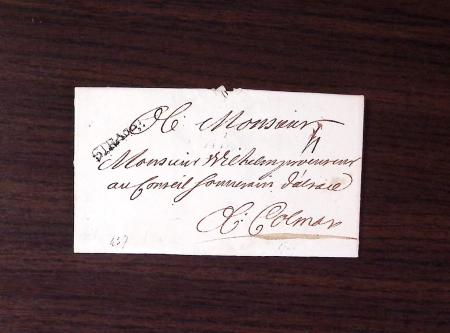 STRASB.
A Monsieur
Monsieur Wilhelm procureur
au Conseil Souverain d'alsace
A Colmar